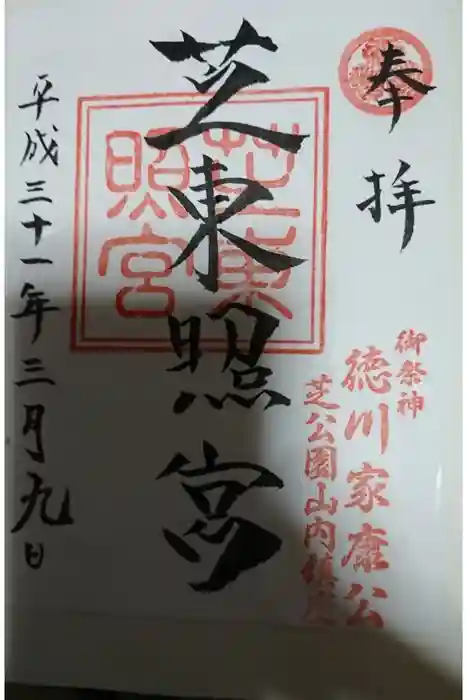 奉拝
御祭神
徳川家康公
芝公園山内鎮座
芝東照宮
芝東照宮
平成三十一年三月九日